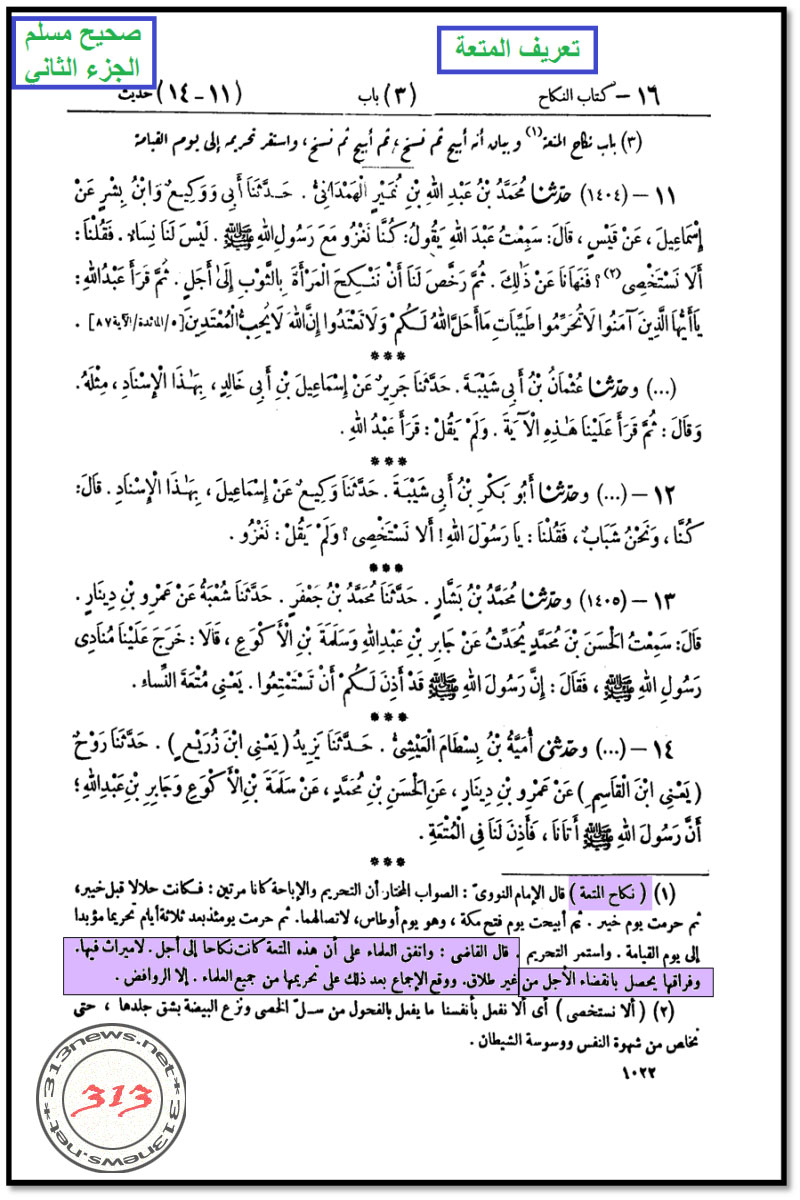 صحيح مسلم
الجزء الثاني
تعريف المتعة
١٦ – كتاب النكاح (٣) باب (١١-١٤) حديث
(٣) باب نكاح المتعة(١) وبيان أنه أبيح ثم نسخ، ثم أبيح ثم نسخ، واستقر تحريمه إلى يوم القيامة
١١ – (١٤٠٤) حدّثنا مُحَمَّدُ بْنُ عَبْدِ اللهِ بْنِ نُمَيْرٍ الْهَمْدَانِيُّ . حَدَّثَنَا أَبِي وَوَكِيعٌ وَابْنُ بِشْرٍ عَنْ
إِسْمَاعِيلَ ، عَنْ قَيْسٍ ، قَالَ: سَمِعْتُ عَبْدَ اللهِ يَقُولُ: كُنَّا نَغْزُو مَعَ رَسُولِ اللهِ ﷺ . لَيْسَ لَنَا نِسَاءٌ. فَقُلْنَا:
أَلَا نَسْتَخْصِي(٢)؟ فَنَهَانَا عَنْ ذَٰلِكَ . ثُمَّ رَخَّصَ لَنَا أَنْ نَنْكِحَ الْمَرْأَةَ بِالثَّوْبِ إِلَىٰ أَجَلٍ . ثُمَّ قَرَأَ عَبْدُ اللهِ:
يَا أَيُّهَا الَّذِينَ آمَنُوا لَا تُحَرِّمُوا طَيِّبَاتِ مَا أَحَلَّ اللهُ لَكُمْ وَلَا تَعْتَدُوا إِنَّ اللهَ لَا يُحِبُّ الْمُعْتَدِينَ [٥/المائدة/الآية ٨٧] .
***
(...) وحدّثنا عُثْمَانُ بْنُ أَبِي شَيْبَةَ . حَدَّثَنَا جَرِيرٌ عَنْ إِسْمَاعِيلَ بْنِ أَبِي خَالِدٍ ، بِهَٰذَا الْإِسْنَادِ ، مِثْلَهُ.
وَقَالَ : ثُمَّ قَرَأَ عَلَيْنَا هَٰذِهِ الْآيَةَ . وَلَمْ يَقُلْ : قَرَأَ عَبْدُ اللهِ .
***
١٢ – (...) وحدّثنا أَبُو بَكْرِ بْنُ أَبِي شَيْبَةَ . حَدَّثَنَا وَكِيعٌ عَنْ إِسْمَاعِيلَ ، بِهَٰذَا الْإِسْنَادِ . قَالَ:
كُنَّا ، وَنَحْنُ شَبَابٌ ، فَقُلْنَا : يَا رَسُولَ اللهِ! أَلَا نَسْتَخْصِي؟ وَلَمْ يَقُلْ : نَغْزُو .
***
١٣ – (١٤٠٥) وحدّثنا مُحَمَّدُ بْنُ بَشَّارٍ . حَدَّثَنَا مُحَمَّدُ بْنُ جَعْفَرٍ . حَدَّثَنَا شُعْبَةُ عَنْ عَمْرِو بْنِ دِينَارٍ .
قَالَ: سَمِعْتُ الْحَسَنَ بْنَ مُحَمَّدٍ يُحَدِّثُ عَنْ جَابِرِ بْنِ عَبْدِ اللهِ وَسَلَمَةَ بْنِ الْأَكْوَعِ ، قَالَا : خَرَجَ عَلَيْنَا مُنَادِي
رَسُولِ اللهِ ﷺ ، فَقَالَ : إِنَّ رَسُولَ اللهِ ﷺ قَدْ أَذِنَ لَكُمْ أَنْ تَسْتَمْتِعُوا . يَعْنِي مُتْعَةَ النِّسَاءِ .
***
١٤ – (...) وحدّثني أُمَيَّةُ بْنُ بِسْطَامَ الْعَيْشِيُّ . حَدَّثَنَا يَزِيدُ ( يَعْنِي ابْنَ زُرَيْعٍ ) . حَدَّثَنَا رَوْحٌ
( يَعْنِي ابْنَ الْقَاسِمِ ) عَنْ عَمْرِو بْنِ دِينَارٍ ، عَنِ الْحَسَنِ بْنِ مُحَمَّدٍ ، عَنْ سَلَمَةَ بْنِ الْأَكْوَعِ وَجَابِرِ بْنِ عَبْدِ اللهِ؛
أَنَّ رَسُولَ اللهِ ﷺ أَتَانَا ، فَأَذِنَ لَنَا فِي الْمُتْعَةِ .
***
(١) ( نكاح المتعة ) قال الإمام النووىّ : الصواب المختار أن التحريم والإباحة كانا مرتين : فكانت حلالا قبل خيبر،
ثم حرمت يوم خيبر . ثم أبيحت يوم فتح مكة ، وهو يوم أوطاس، لاتصالهما. ثم حرمت يومئذ بعد ثلاثة أيام تحريما مؤبدا
إلى يوم القيامة . واستمر التحريم . قال القاضى : واتفق العلماء على أن هذه المتعة كانت نكاحا إلى أجل. لا ميراث فيها.
وفراقها يحصل بانقضاء الأجل من غير طلاق. ووقع الإجماع بعد ذلك على تحريمها من جميع العلماء . إلا الروافض .
(٢) ( ألا نستخصى ) أى ألا نفعل بأنفسنا ما يفعل بالفحول من سلّ الخصى ونزع البيضة بشق جلدها ، حتى
نخلص من شهوة النفس ووسوسة الشيطان .
١٠٢٢
313news.net*313news.net*
313